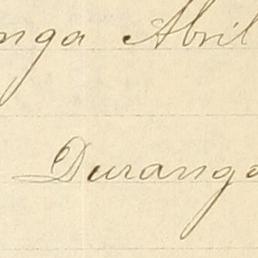 nga Abril
Durango